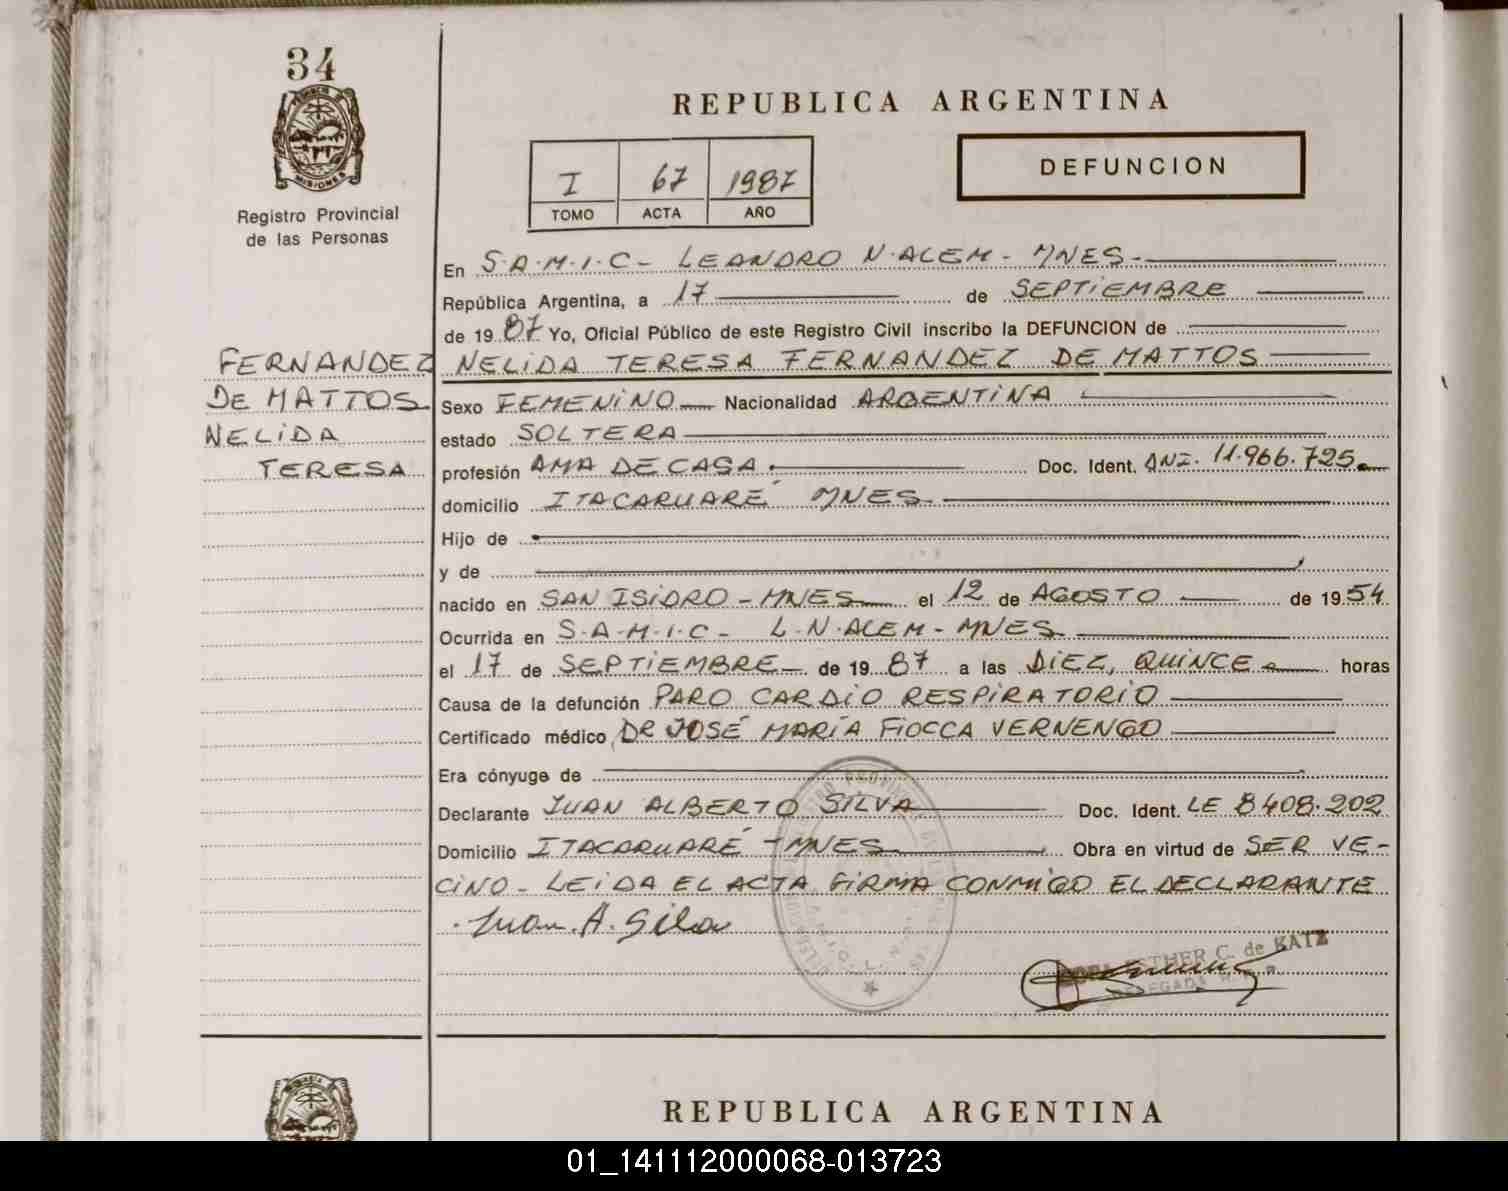 34
PROVINCIA DE
MISIONES
Registro Provincial
de las Personas
REPUBLICA ARGENTINA
I 67 1987
TOMO ACTA AÑO
DEFUNCION
En S.A.M.I.C - LEANDRO N. ALEM - MNES -
República Argentina, a 17 de SEPTIEMBRE
de 19 87 Yo, Oficial Público de este Registro Civil inscribo la DEFUNCION de
NELIDA TERESA FERNANDEZ DE MATTOS
FERNANDEZ
DE MATTOS
NELIDA
TERESA
Sexo FEMENINO Nacionalidad ARGENTINA
estado SOLTERA
profesión AMA DE CASA . Doc. Ident. DNI. 11.966.725.
domicilio ITACARUARÉ MNES
Hijo de
y de
nacido en SAN ISIDRO - MNES el 12 de AGOSTO de 19 54
Ocurrida en S.A.M.I.C - L.N. ALEM - MNES
el 17 de SEPTIEMBRE de 19 87 a las DIEZ, QUINCE horas
Causa de la defunción PARO CARDIO RESPIRATORIO
Certificado médico DR JOSÉ MARÍA FIOCCA VERNENGO
Era cónyuge de
Declarante JUAN ALBERTO SILVA Doc. Ident. LE 8408.202
Domicilio ITACARUARÉ - MNES Obra en virtud de SER VE-
CINO - LEIDA EL ACTA FIRMA CONMIGO EL DECLARANTE
Juan A. Silva
ESTHER C. de KATZ
DELEGADA
REPUBLICA ARGENTINA
01_141112000068-013723